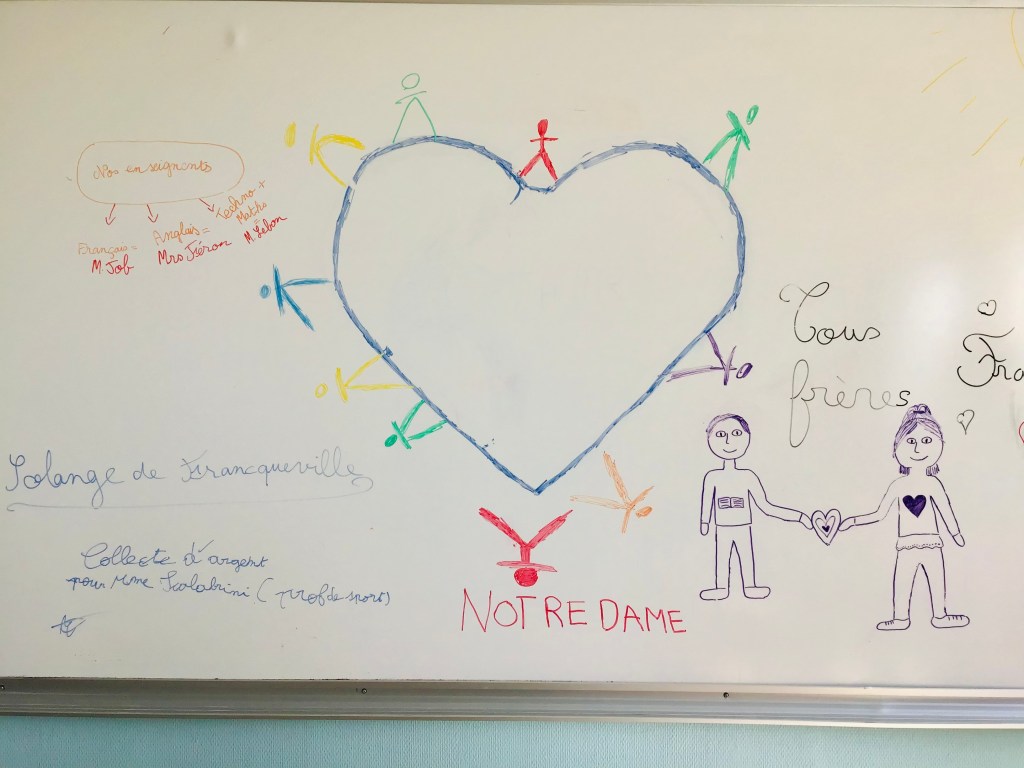 Nos enseignants
Français =
M. Job
Anglais =
Mrs Féron
Techno +
Maths
=
M. Lebon
Tous
frères
Fra
Solange de Francqueville
Collecte d'argent
pour Mme Scolabrini (prof de sport)
NOTRE DAME